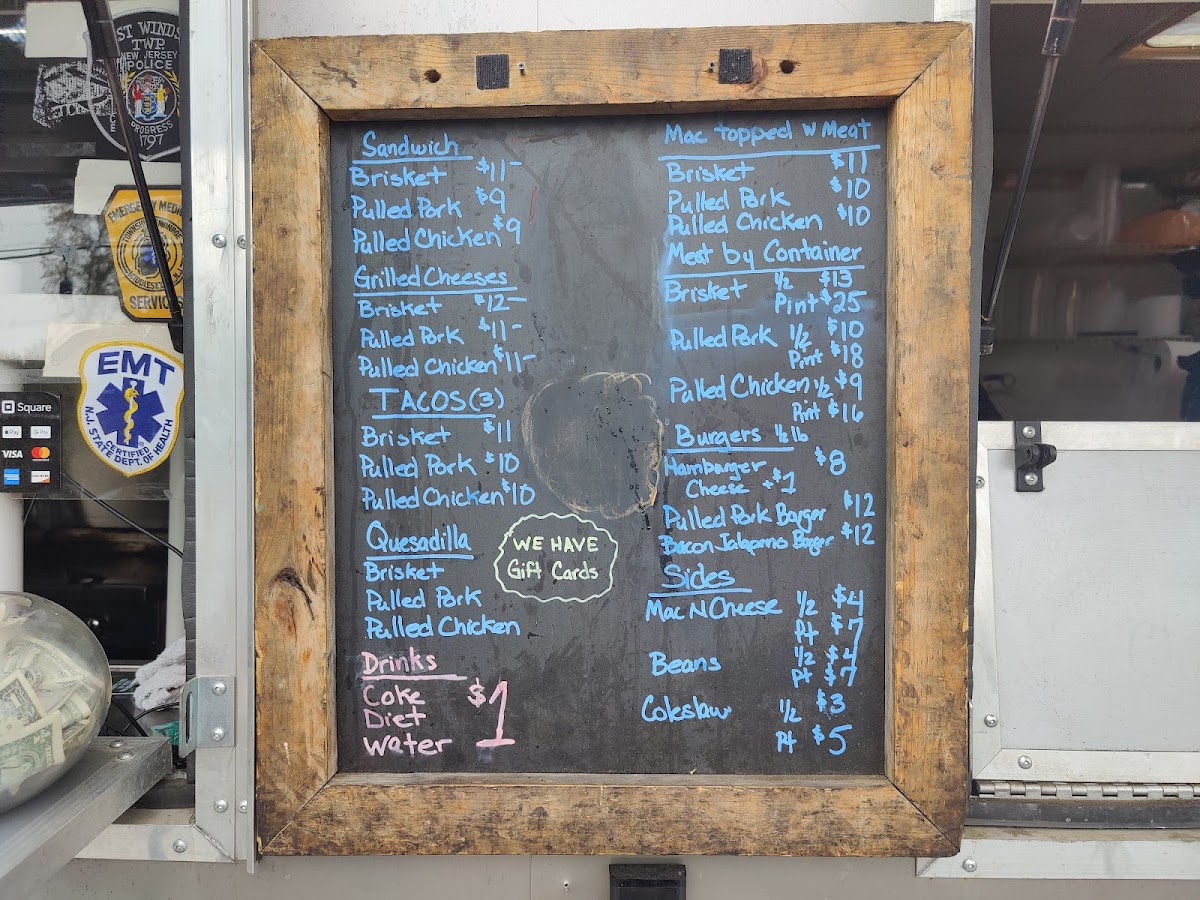 ST WINDS
TWP.
NEW JERSEY
POLICE
PROGRESS
1797
EMERGENCY MEDIC
SERVIC
EMT
CERTIFIED
N.J. STATE DEPT. OF HEALTH
Square
Pay
Pay
VISA
Sandwich
Brisket $11-
Pulled Pork $9
Pulled Chicken $9
Grilled Cheeses
Brisket $12-
Pulled Pork $11-
Pulled Chicken $11-
TACOS (3)
Brisket $11
Pulled Pork $10
Pulled Chicken $10
Quesadilla
Brisket
Pulled Pork
Pulled Chicken
WE HAVE
Gift Cards
Drinks
Coke $1
Diet
Water
Mac topped w Meat
Brisket $11
Pulled Pork $10
Pulled Chicken $10
Meat by Container
Brisket 1/2 $13
Pint $25
Pulled Pork 1/2 $10
Pint $18
Pulled Chicken 1/2 $9
Pint $16
Burgers 1/2 lb
Hamburger $8
Cheese +$1
Pulled Pork Burger $12
Bacon Jalapeno Burger $12
Sides
Mac N Cheese 1/2 $4
Pt $7
Beans 1/2 $4
Pt $7
Coleslaw 1/2 $3
Pt $5